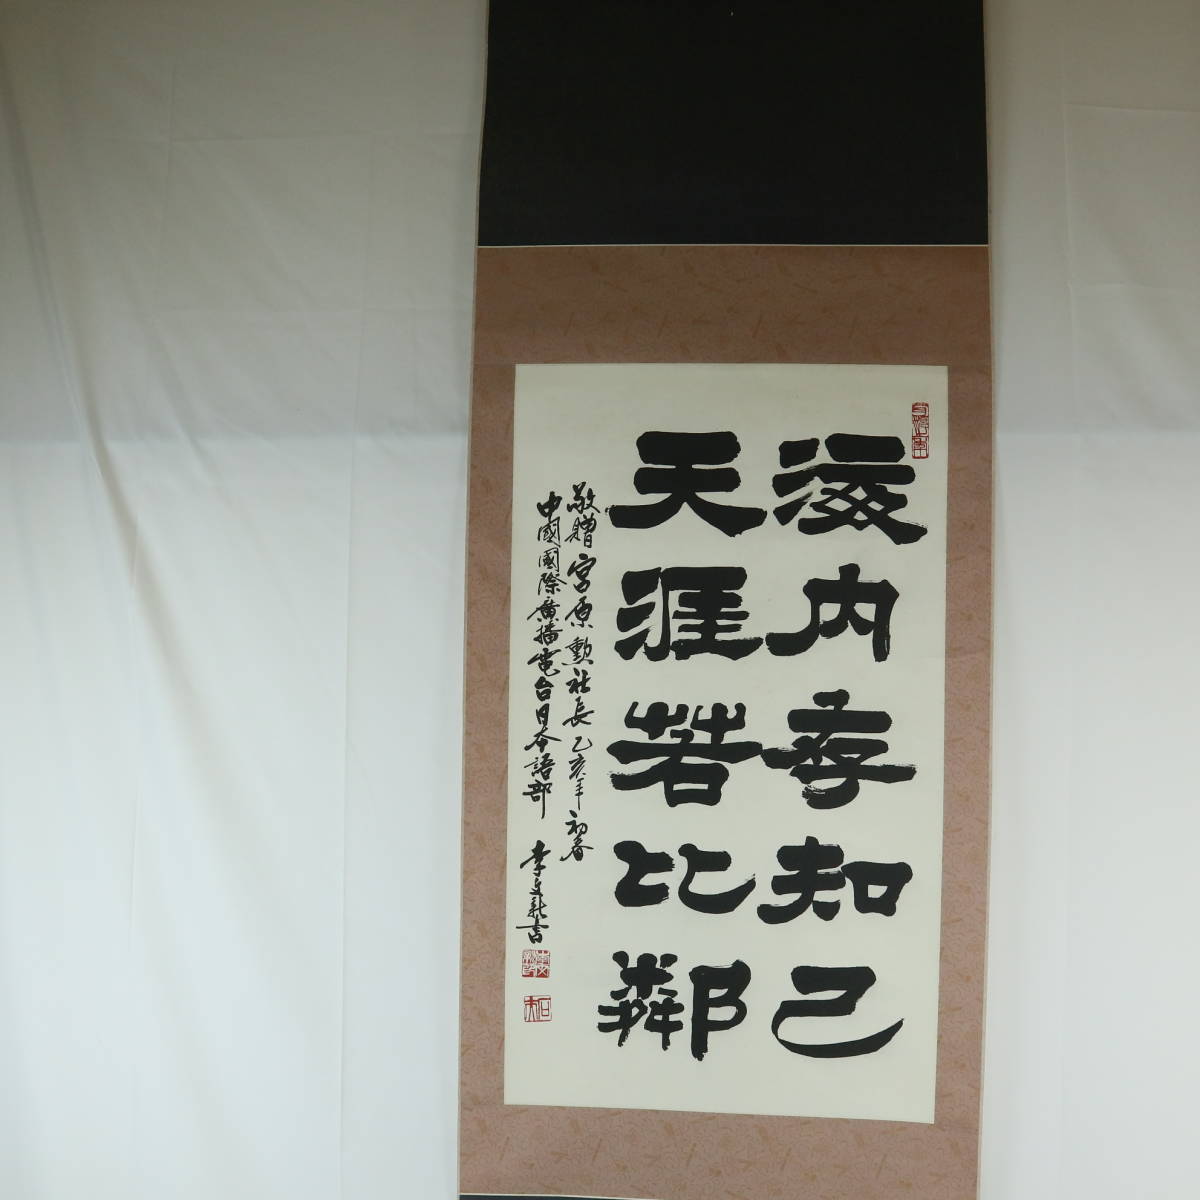 海内存知己
天涯若比鄰
敬贈宮原勲社長乙亥年初春
中國國際廣播電台日本語部 李文新書